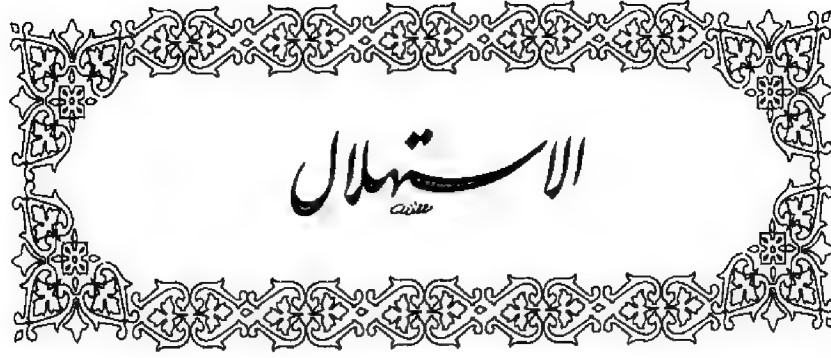 الاستهلال